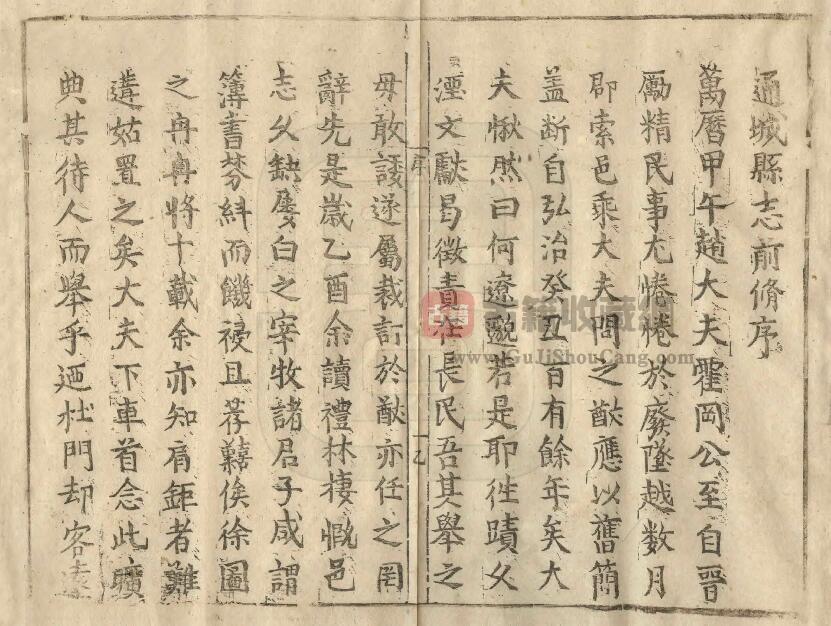 通城縣志前脩序
萬曆甲午趙大夫霍岡公至自晉
勵精民事尤惓惓於廢墜越数月
即索邑乘大夫問之猷應以舊簡
盖断自弘治癸丑百有餘年矣大
夫愀然曰何遼邈若是耶徃蹟久
湮文獻曷徵責在長民吾其舉之
毋敢諼遂屬裁訂於猷亦任之罔
辭先是嵗乙酉余讀禮林棲慨邑
志久缺屢白之宰牧諸君子咸謂
簿書棼糾而饑祲且荐囏俟徐圖
之冉冉將十載余亦知肩鉅者難
遘姑置之矣大夫下車首念此曠
典其待人而舉乎迺杜門却客
序
一乙
古籍收藏網
www.GuJiShouCang.com